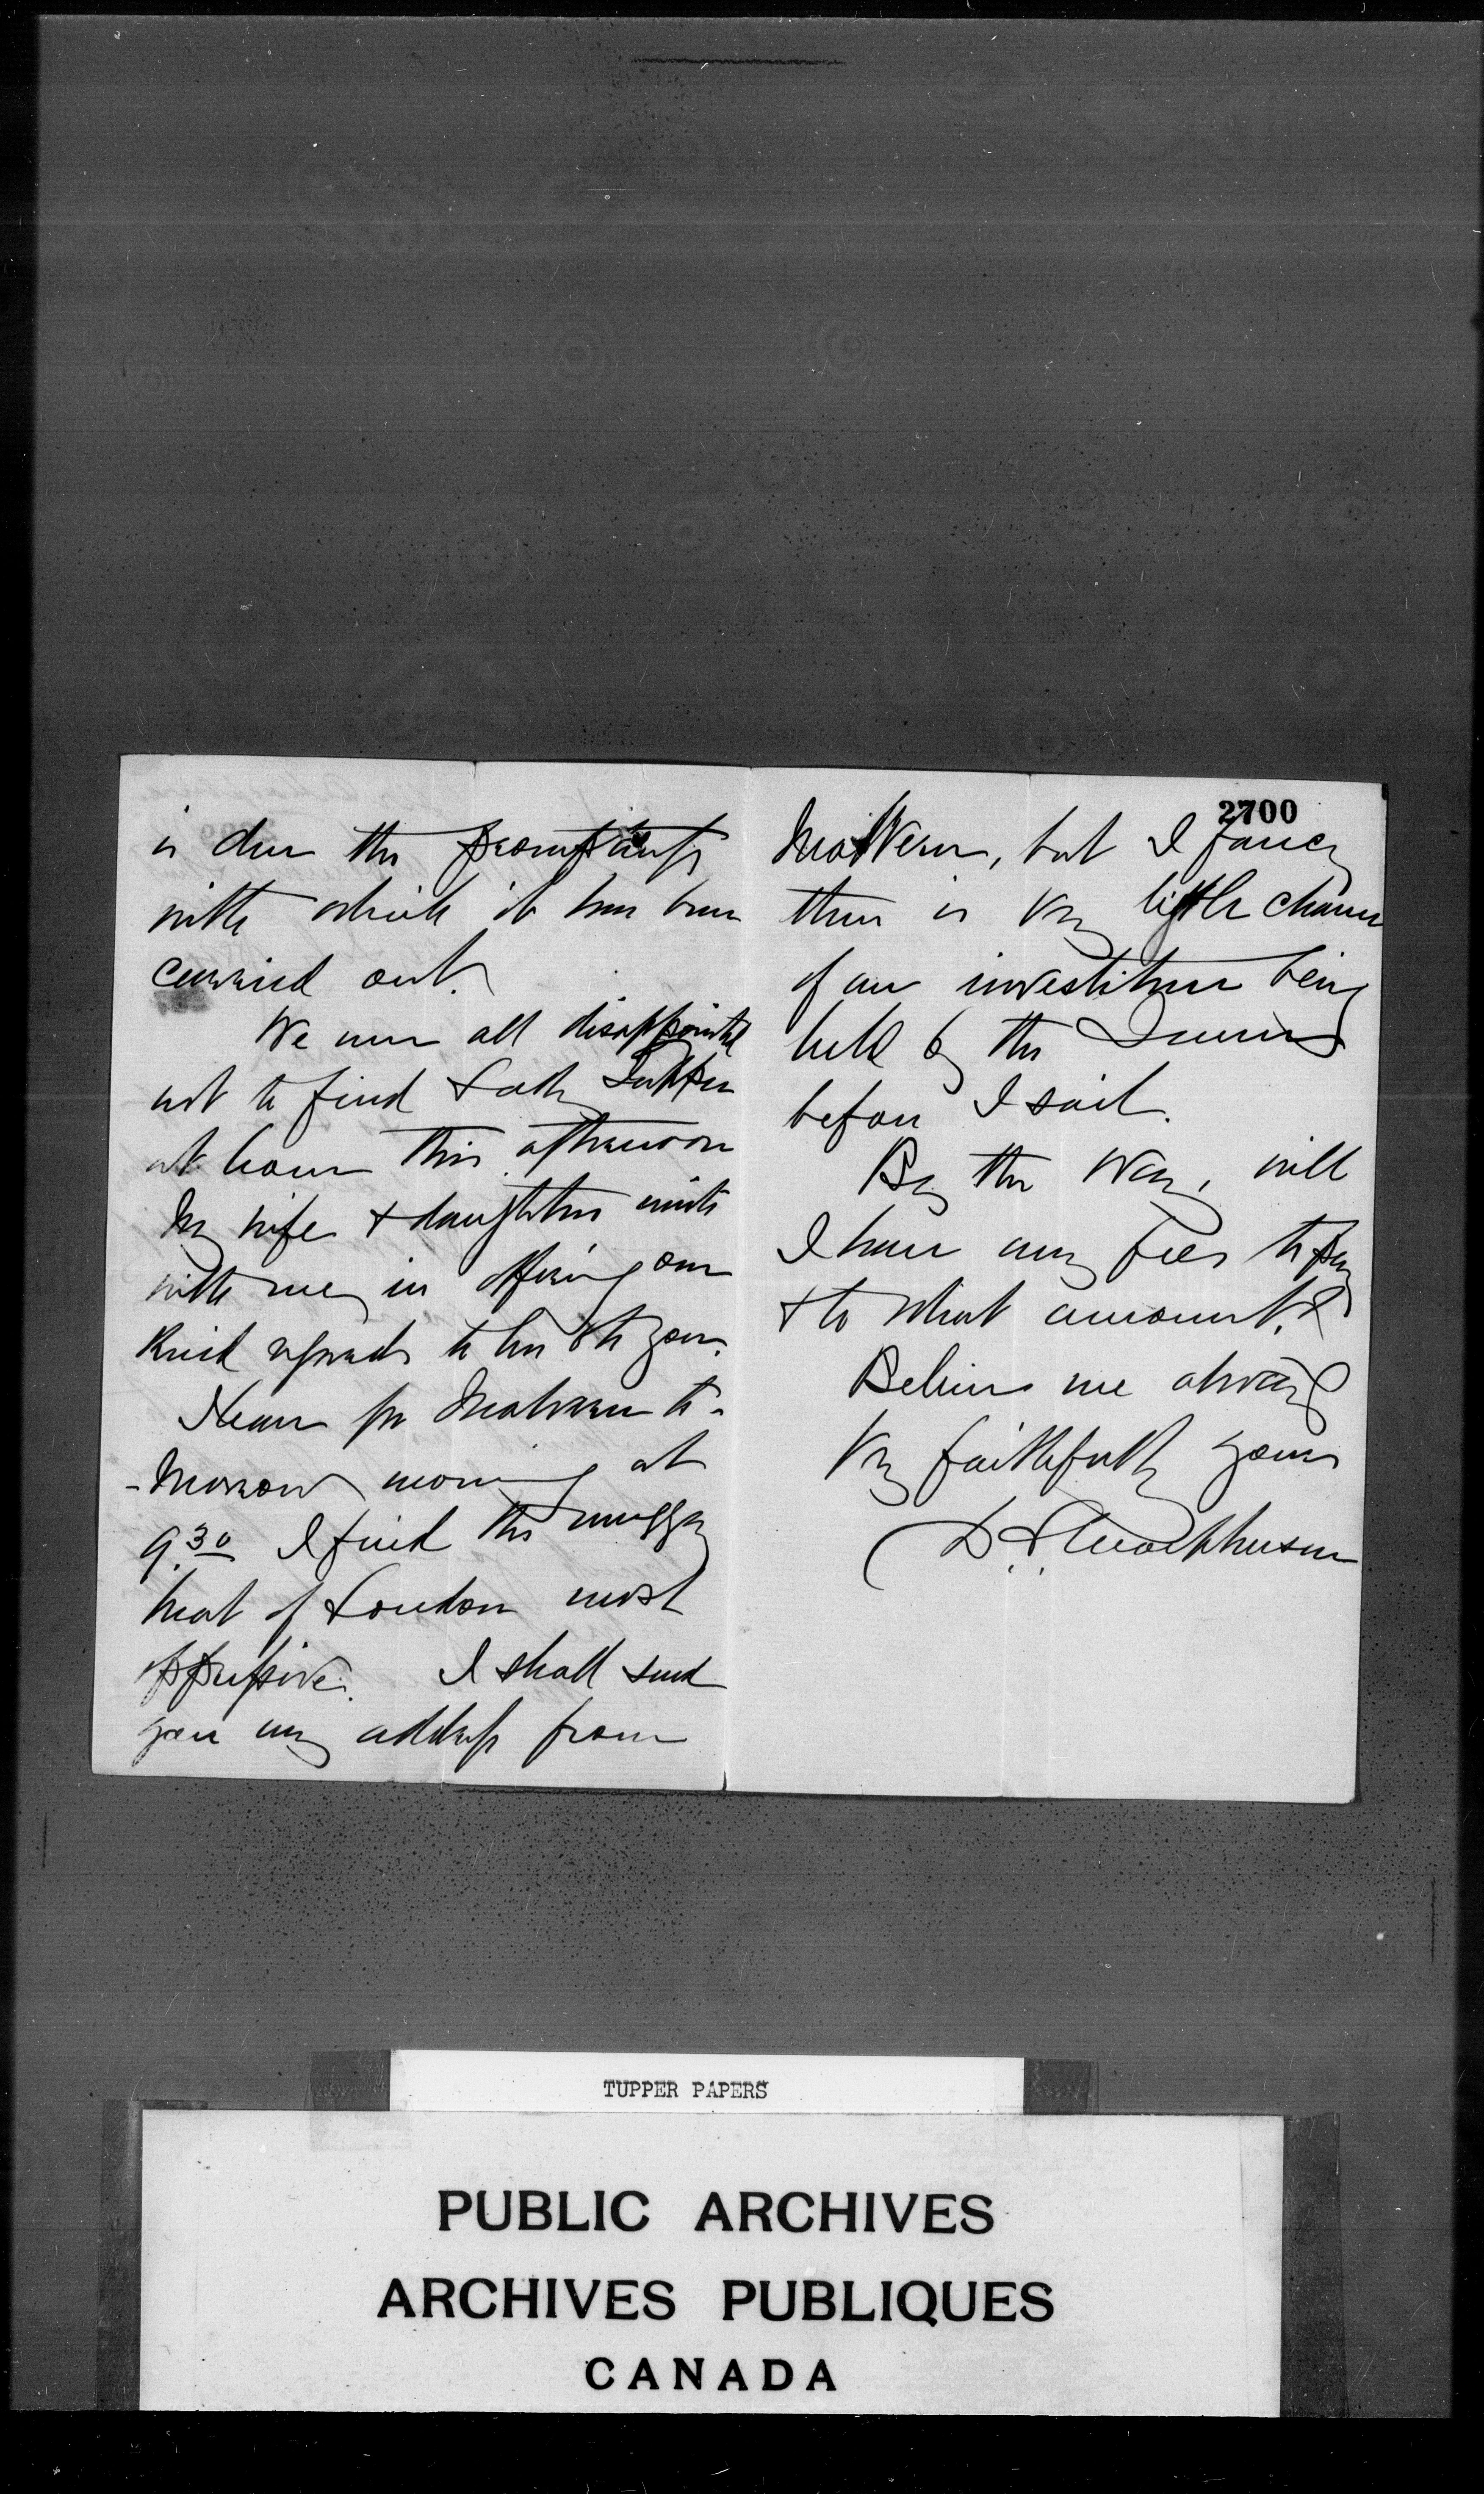 is due the promptness
with which it has been
carried out.
We were all disappointed
not to find Lady Tupper
at home this afternoon
My wife & daughters unite
with me in offering our
kind regards to her & to you.
I leave for Malvern to-
-morrow morning at
9.30 I find the muggy
heat of London most
oppressive. I shall send
you my address from
2700
Malvern, but I fancy
there is very little chance
of an investiture being
held by the Queen
before I sail.
By the way, will
I have any fees to pay
& to what amount?
Believe me always
Very faithfully yours
D. L. Macpherson
TUPPER PAPERS
PUBLIC ARCHIVES
ARCHIVES PUBLIQUES
CANADA